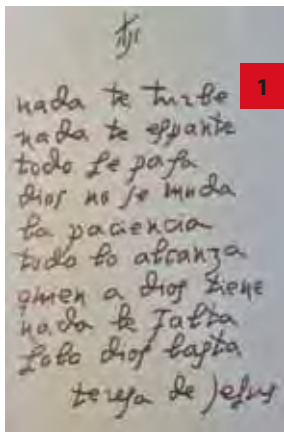 jhs
1
nada te turbe
nada te espante
todo se pasa
dios no se muda
la paciencia
todo lo alcanza
quien a dios tiene
nada le falta
solo dios basta
teresa de jesus